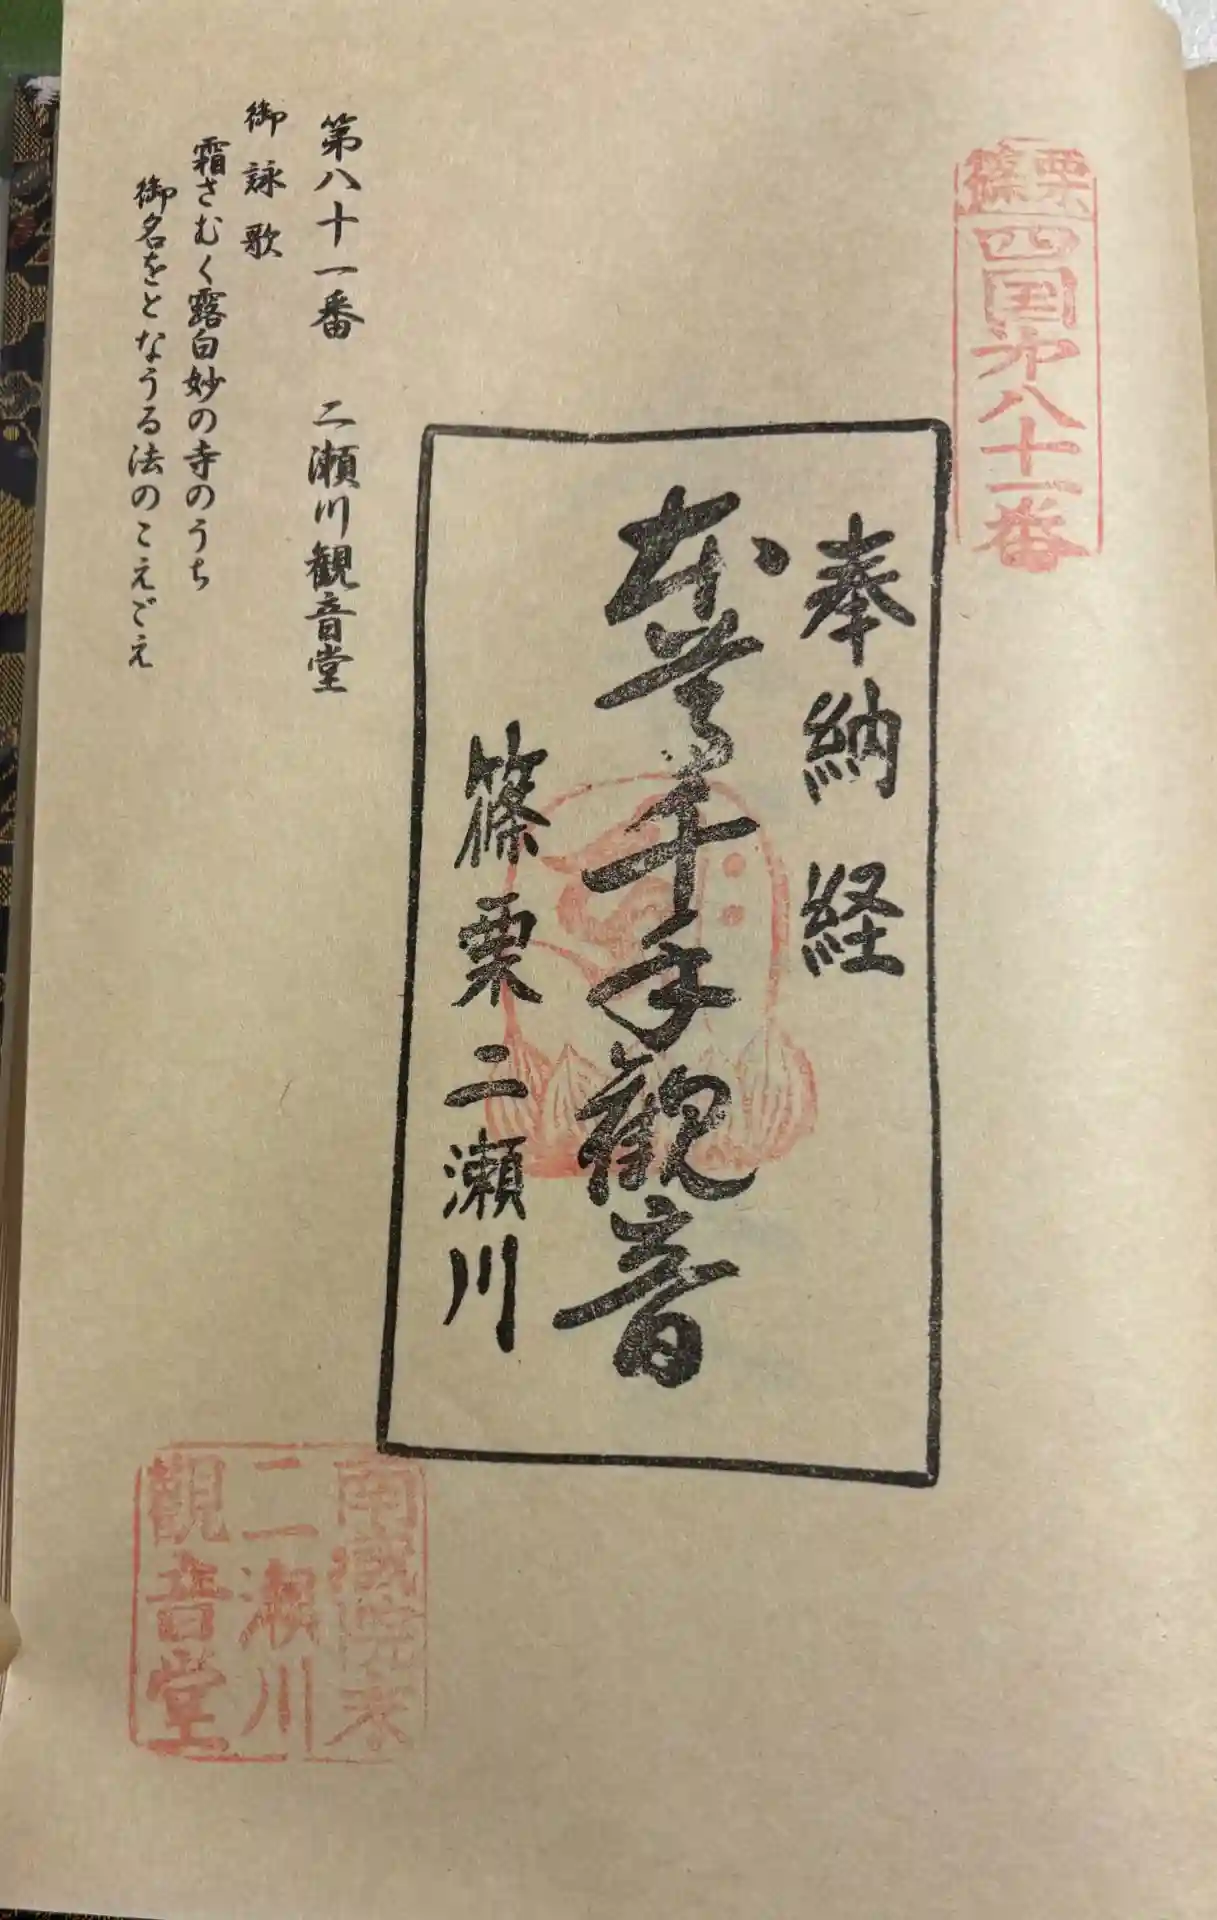 篠栗
四国第八十一番
奉納経
本尊千手観音
篠栗二瀬川
第八十一番 二瀬川観音堂
御詠歌
霜さむく露白妙の寺のうち
御名をとなうる法のこえごえ
南蔵院末
二瀬川
觀音堂